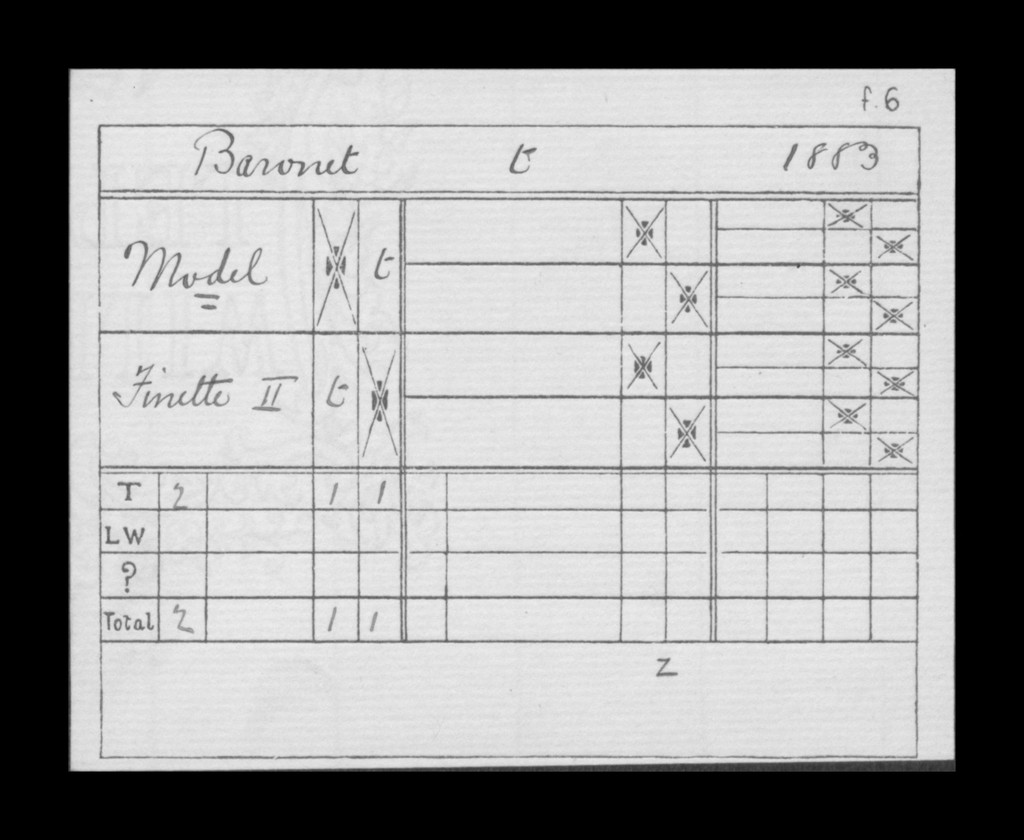 f. 6
Baronet t 1883
Model t
Finette II t
T 2 1 1
LW
?
Total 2 1 1
Z